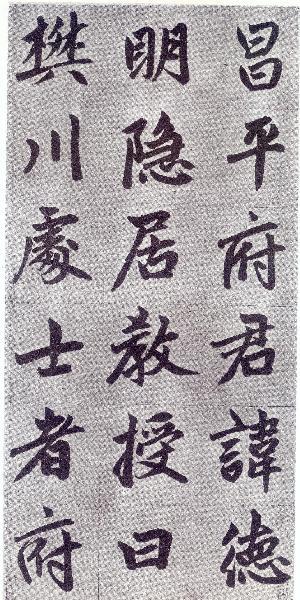 昌平府君諱德
明隐居教授曰
樊川處士者府